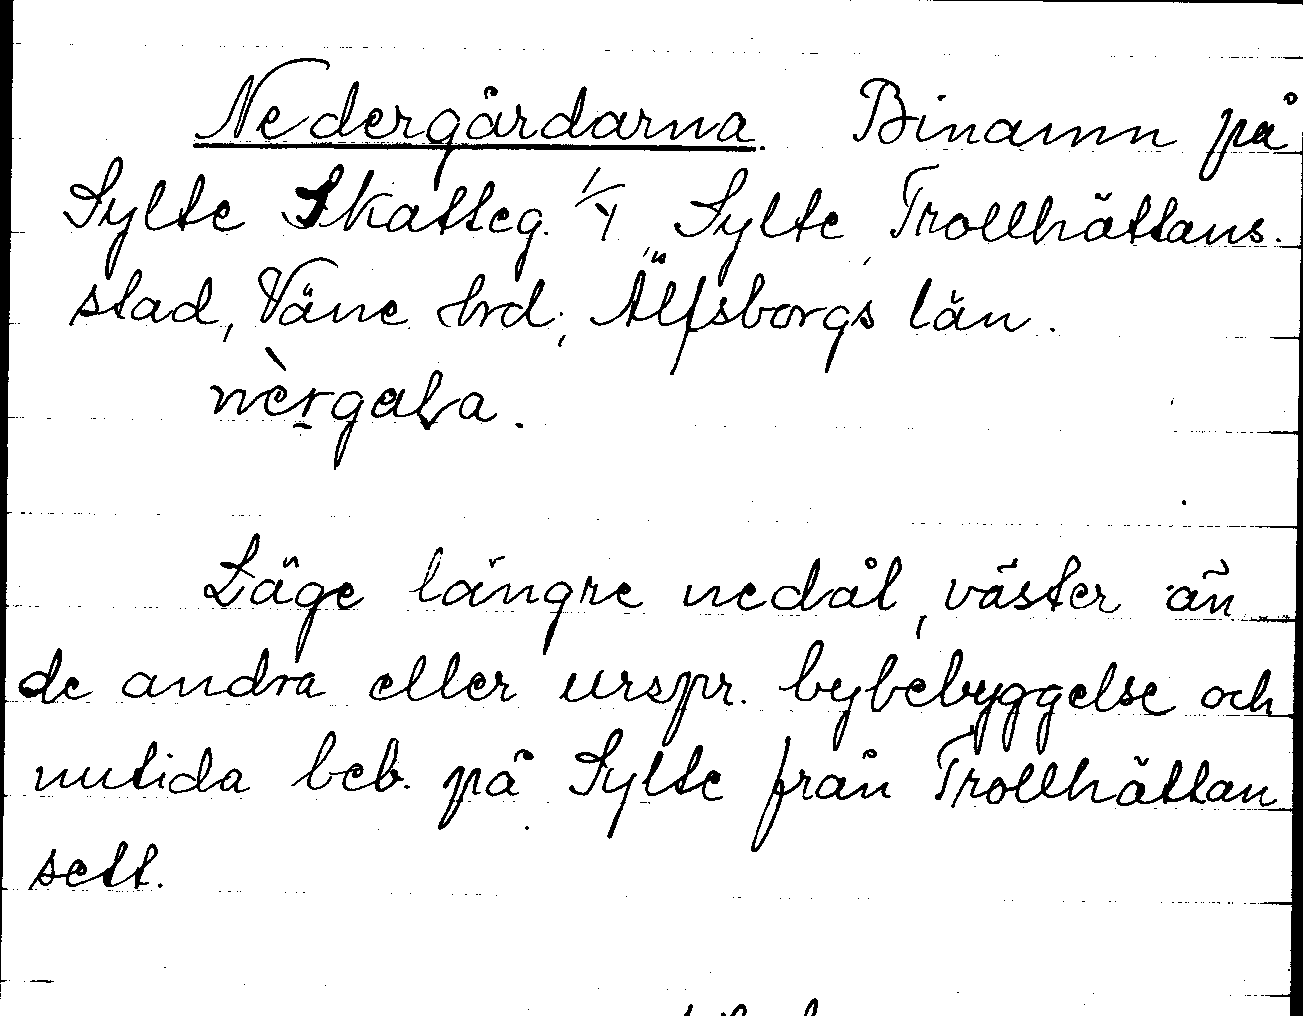 Nedergårdarna. Binamn på
Sylte Skatteg. 1/1, Sylte, Trollhättans
stad, Väne hrd, Älfsborgs län.
nèrgaɭa.
Läge längre nedåt, väster än
de andra eller urspr. bybebyggelse och
nutida beb. på Sylte från Trollhättan
sett.